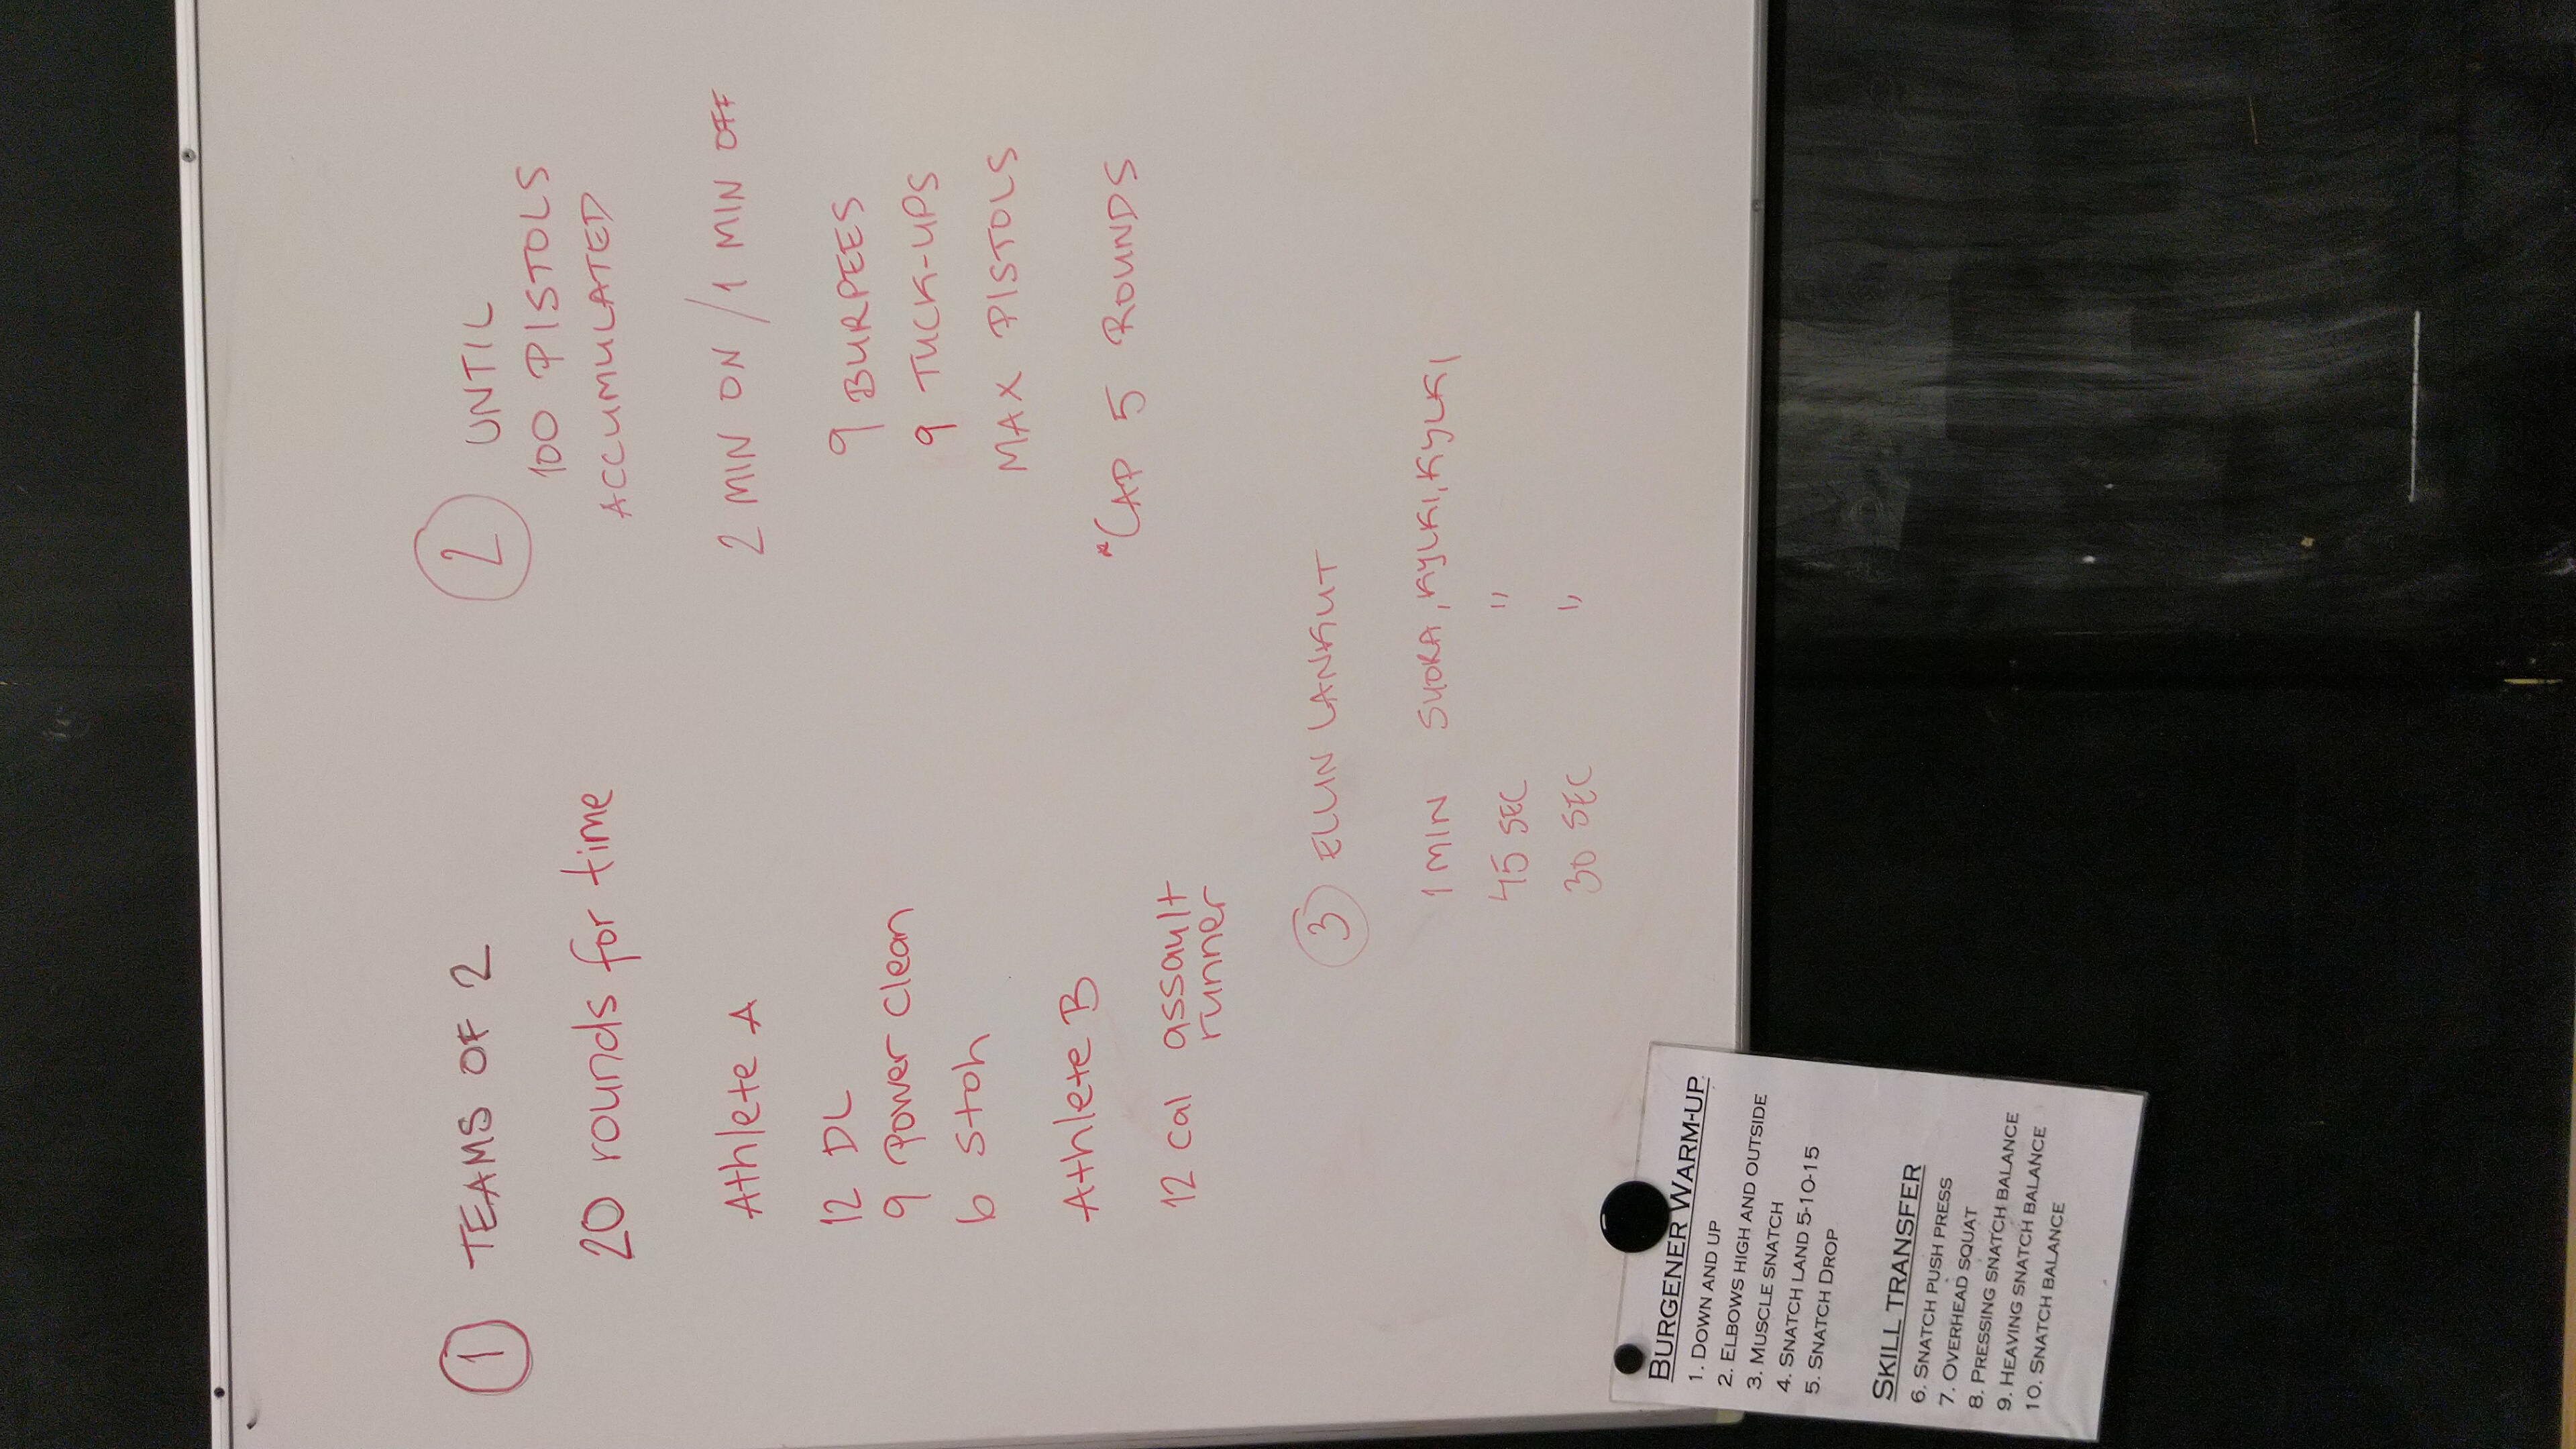 1 TEAMS OF 2
20 rounds for time
Athlete A
12 DL
9 Power clean
6 Stoh
Athlete B
12 Cal assault
runner
2 UNTIL
100 PISTOLS
ACCUMULATED
2 MIN ON / 1 MIN OFF
9 BURPEES
9 TUCK-UPS
MAX PISTOLS
*CAP 5 ROUNDS
3 ELVIN LANKUT
1 MIN SUORA, KYLKI, KYLKI
45 SEC "
30 SEC "
BURGENER WARM-UP
1. DOWN AND UP
2. ELBOWS HIGH AND OUTSIDE
3. MUSCLE SNATCH
4. SNATCH LAND 5-10-15
5. SNATCH DROP
SKILL TRANSFER
6. SNATCH PUSH PRESS
7. OVERHEAD SQUAT
8. PRESSING SNATCH BALANCE
9. HEAVING SNATCH BALANCE
10. SNATCH BALANCE